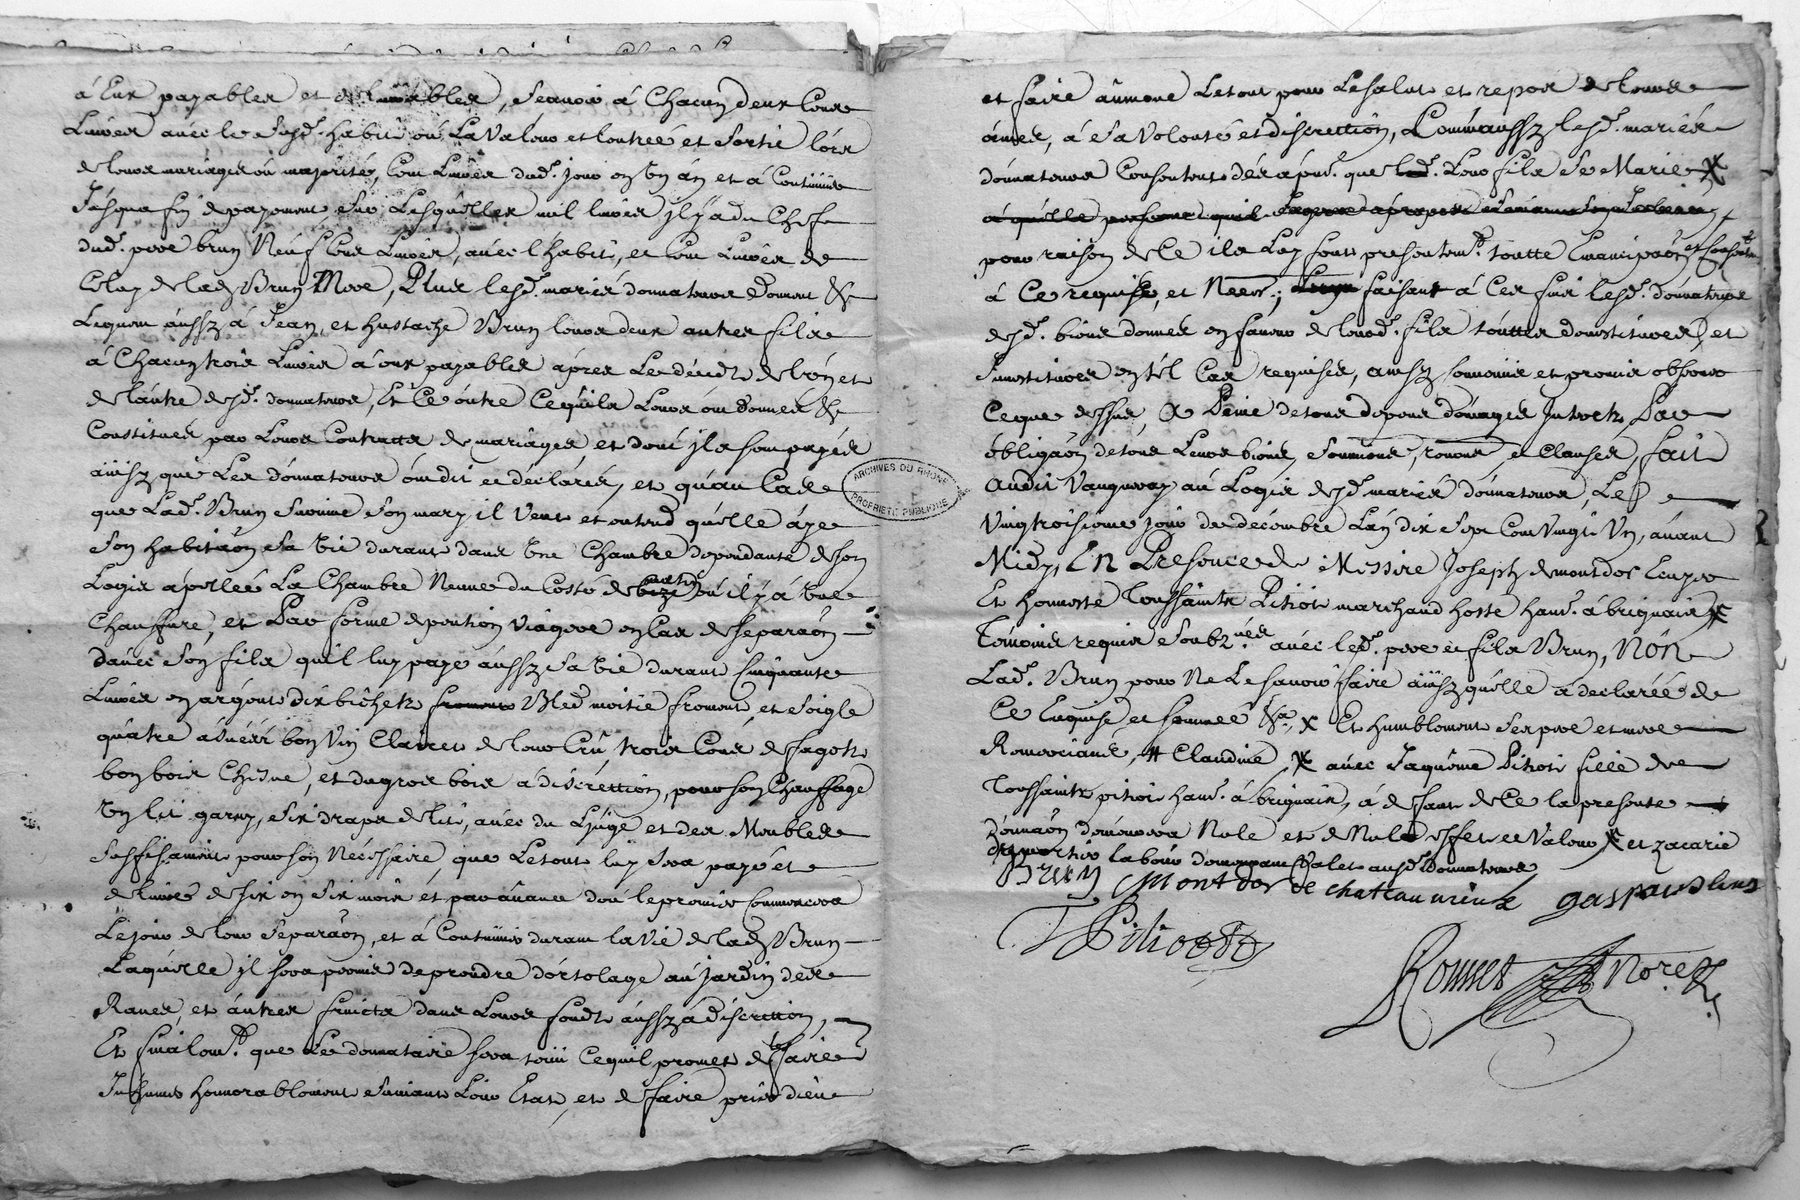 à Eux payables et , scavoir à Chacun deux Cents
Livres avec lesd. habits ou La Valeur et loutreé et sortie lors
de leurs mariages ou majorités, Cent Livres dud. jour en Un án et à Continüer
Jusqua fin de payement, sur Lesquelles mil livres il y a du Chef
dud. pere brun Neuf Cens Livres, avec l'habit, et Cent Livres de
Celuy de lad. Brun Mere, Plus lesd. mariés donnateurs donnent &
Leguent aussy à Jean, et hustache Brun leurs deux autres fils
à Chacun trois Livres à eux payables aprés Le décéds de l'un et
de láutre desd. donnateurs, Et Ce óutre Cequils Leurs ont donnés &
Constitués par Leurs Contracts de mariages et dont ils sont payés
aüssy que Les donnateurs ónt dit et déclarés, et qu'au Cas
que Lad. Brun survive son mary il Veut et entend qu'elle áye
son habitaôn sa Vie durant dans Une Chambre dependante de son
Logis apellée La Chambre Neuve du Costé de matin où il y à Une
Chauffure, et Par forme de pention Viagere en Cas de separaôn
davec son fils quil luy paye aussy sa Vie durant Cinquante
Livres en argent dix bichets Bled moitié froment, et seigle
quatre bon Vin Clairet de leur Crû, trois Cens de fagots
bon bois Chesne, et du gros bois à discrettion, pour son Chauffage
Un lit garny, six draps de lit, avec du Linge et des Meubles
suffisament pour son Nécéssaire, que Letout luy sera payé et
délivré de six en six mois et par ávance dont le premier Commencera
Lejour de leur séparaôn, et à Continüer durant la Vie de lad. Brun
Laquelle il sera permis de prendre d'ortolage au jardin des
Raves, et autres fruicts dans Leurs fonds aussy à discrettion,
Et finalemt. que Le donnataire sera tenü Cequil promet de les faire
Inhumer honnorablement suivant Leur Etat, et de faire prier dieu
et faire aumone Letout pour Lesalut et repos de leurs
ámes, à sa Volonté et discrettion, Comm'aussy lesd. mariés
donnateurs Consentent dés à pnt. que led. Leur fils se Marie X
pour raison de Ce ils Luy font présentemt. toutte Emancipaôn et Consentemt.
à Ce requise, et Necesre.; faisant à Ces fins lesd. donnateurs
desd. biens donnés en faveur de leurd. fils touttes Démistitures, et
Investitures en tel Cas requises, ainsy Convenü et promis obsérver
Ceque dessus, à Peine detous depens domages Interets, Par
obligaôn detous Leurs biens, soumions, renons, et Clauses, fait
audit Vaugneray au Logis desd. mariés donnateurs, Le
Vingtroisieme jour de décembre L'an dix sept Cent Vingt Un, ávant
Midy, En Présence de Messire Joseph de montdor Ecuyer
Et honneste Toussaints Pitiot marchand hoste hant. à briguais X
Temoins requis soubznés. avec lesd. pere et fils Brun, Nón
Lad. Brun pour Ne Le scavoir faire aüssy qu'elle à declarée de
Ce Enquise et sommeé &a. X Et humblement ses pere et mere
Remerciant, # Claudine, X avec Jaquéme Pitiot fille de
Toussaints pitiot hant. à briguais, à déffaut de Ce la présente
donnaôn demeurera Nule et de Nul effet et Valeur X et zacarie
laboür demeurant Valet ausd. donnateurs
Brun Montdor de chateauvieux gaspard brun
Pitiot
Ronnet Nore. R.
ARCHIVES DU RHÔNE
PROPRIETE PUBLIQUE